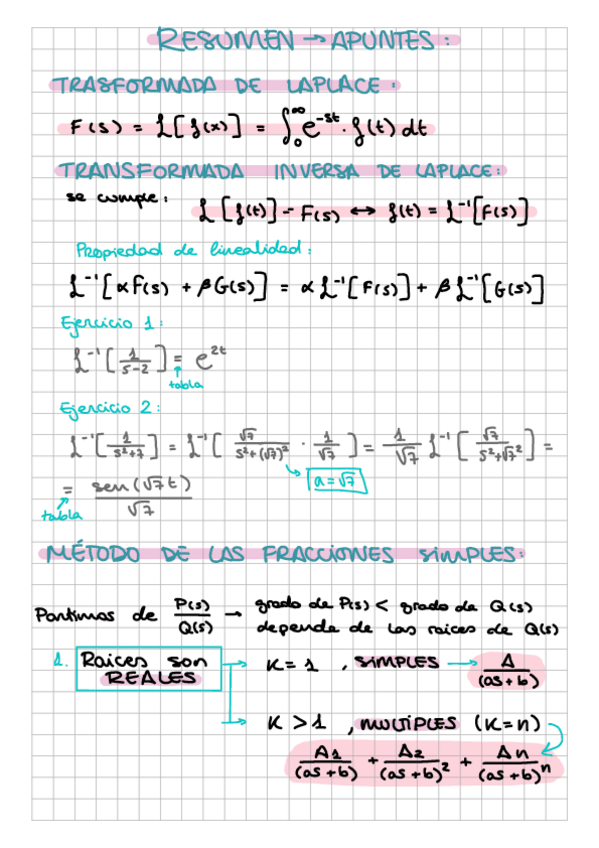 RESUMEN → APUNTES:
TRASFORMADA DE LAPLACE:
F(s) = ℒ[f(x)] = ∫₀^∞ e^(-st) · f(t) dt
TRANSFORMADA INVERSA DE LAPLACE:
se cumple: ℒ[f(t)] = F(s) ↔ f(t) = ℒ⁻¹[F(s)]
Propiedad de linealidad:
ℒ⁻¹[αF(s) + βG(s)] = αℒ⁻¹[F(s)] + βℒ⁻¹[G(s)]
Ejercicio 1:
ℒ⁻¹[1/(s-2)] = e^(2t)
tabla
Ejercicio 2:
ℒ⁻¹[1/(s²+7)] = ℒ⁻¹[√7/(s²+(√7)²) · 1/√7] = 1/√7 ℒ⁻¹[√7/(s²+√7²)] =
a=√7
= sen(√7t)/√7
tabla
MÉTODO DE LAS FRACCIONES SIMPLES:
Partimos de P(s)/Q(s) → grado de P(s) < grado de Q(s)
depende de las raices de Q(s)
1. Raices son REALES → K=1, SIMPLES → A/(as+b)
K>1, MULTIPLES (K=n)
A1/(as+b) + A2/(as+b)² + An/(as+b)ⁿ